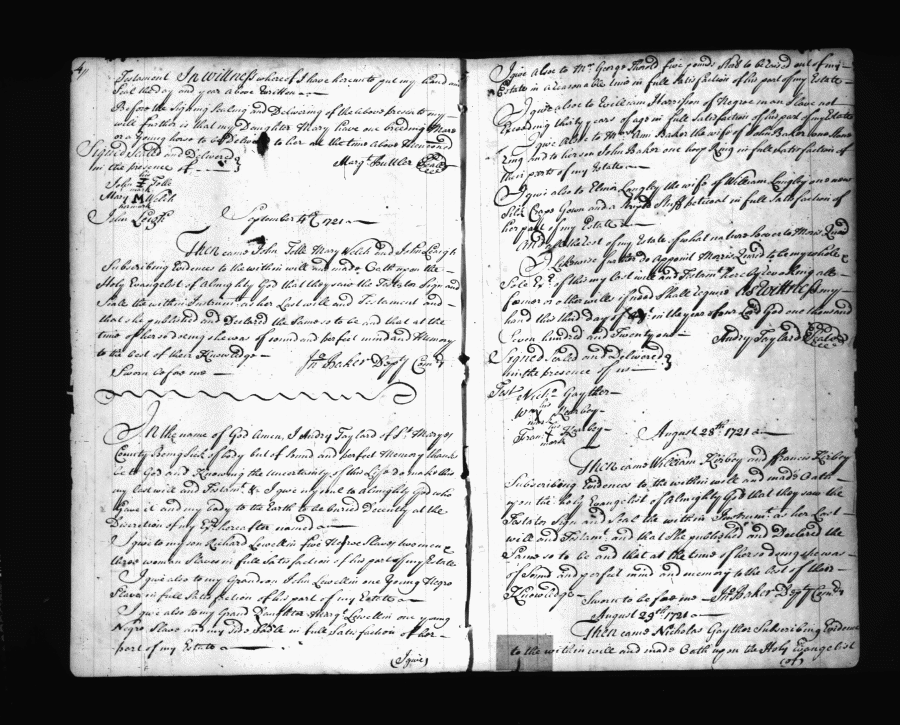 Testament In Witness whereof I have hereunto put my hand and
Seal the day and year above written
Before the Signing Sealing and Delivering of the above presents my
will further is that my Daughter Mary have one breeding Mare
or a young horse to be Deliver'd to her at the time above Mentioned
Signed Seal'd and Delivered
in the presence of
Marg.t Butler Seal
his
John Tolle
mark
Mary M Welch
her mark
John Leigh
September 4th 1721
Then came John Tolle Mary Welch and John Leigh
Subscribing Evidences to the within will and made Oath upon the
Holy Evangelist of Almighty God that they saw the Testator Sign and
Seale the within Instrument as her Last will and Testament and
that she published and Declared the Same so to be and that at the
time of her so doing she was of sound and perfect mind and Memory
to the best of their Knowledge
Sworn before me
Jno Baker Depty Comry
In the name of God Amen, I Audry Taylard of St. Marys
County being Sick of body but of Sound and perfect Memory thanks
be to God and Knowing the uncertainty of this Life Do make this
my last will and Testamt. & I give my soul to Almighty God who
gave it and my body to the Earth to be buried Decently at the
Discretion of my Exr. hereafter named
I give to my son Richard Lewellin five Negroe Slaves two men &
three woman Slaves in full Satisfaction of his part of my Estate
I give also to my Grandson John Lewellin one Young Negro
Slave in full Satisfaction of his part of my Estate
I give also to my Grand Daughter Margt. Lewellin one young
Negro Slave and my Side Sadle in full Satisfaction of her
part of my Estate
I give
I give also to Mr. George Thorold five pounds Star. to be raised out of my
Estate in a reasonable time in full Satisfaction of his part of my Estate
I give also to William Harrison of Negroe man Slave not
Exceeding thirty years of age in full Satisfaction of his part of my Estate
I give also to Mrs Ann Baker the wife of John Baker one
Ring and to her son John Baker one hoop Ring in full Satisfaction of
their parts of my Estate
I give also to Elinr. Langley the wife of William Langley one new
Silk Crape Gown and a Stuff peticoat in full Satisfaction of
her part of my Estate
And the Rest of my Estate of what nature Soever to
Likewise farther do appoint to be my whole &
Sole Exr. of this my last will and Testamt. hereby revoaking all
former or other wills if need Shall require As Witness my
hand this third day of in the year of our Lord God one thousand
Seven hundred and Twenty one
Audry Taylard Seal
Signed Sealed and delivered
in the presence of us
Test Nicho. Gaythor
Wm his Kerbey
mark
Frans. Kerbey
mark
August 28th 1721
Then came William Kirbey and Francis Kirbey
Subscribing Evidences to the within will and made Oath
upon the Holy Evangelist of Almighty God that they saw the
Testator Sign and Seal the within Instrumt. as her Last
will and Testamt. and that She published and Declared the
Same so to be and that at the time of her so doing she was
of Sound and perfect mind and memory to the best of their
Knowledge Sworn to before me Jno Baker Depty Comry
August 29th 1721
Then came Nicholas Gaythor Subscribing Evidence
to the within will and made Oath upon the Holy Evangelist
(of)